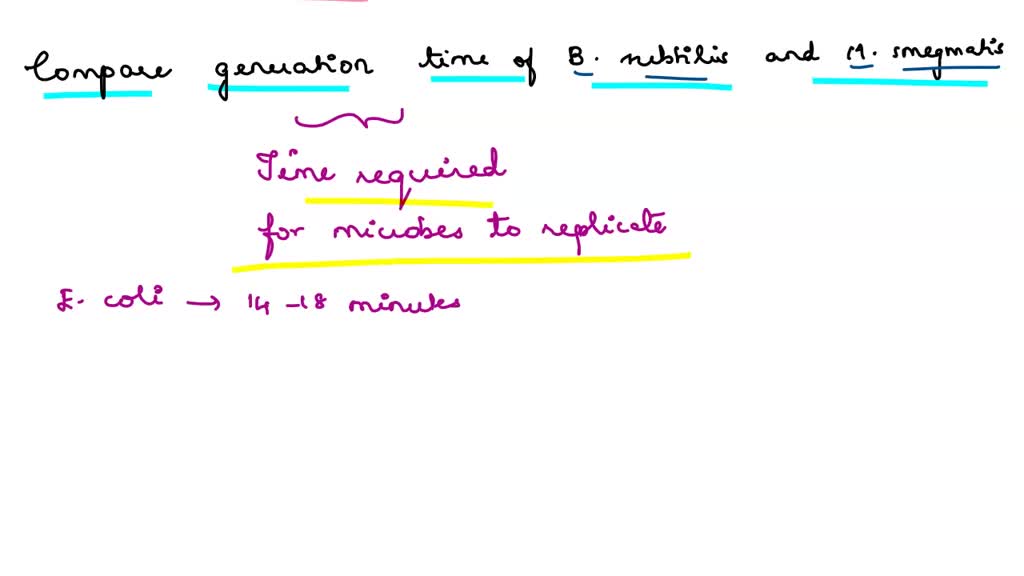 Compare generation time of B. subtilis and M. smegmatis
Time required
for microbes to replicate
E. coli → 14-18 minutes